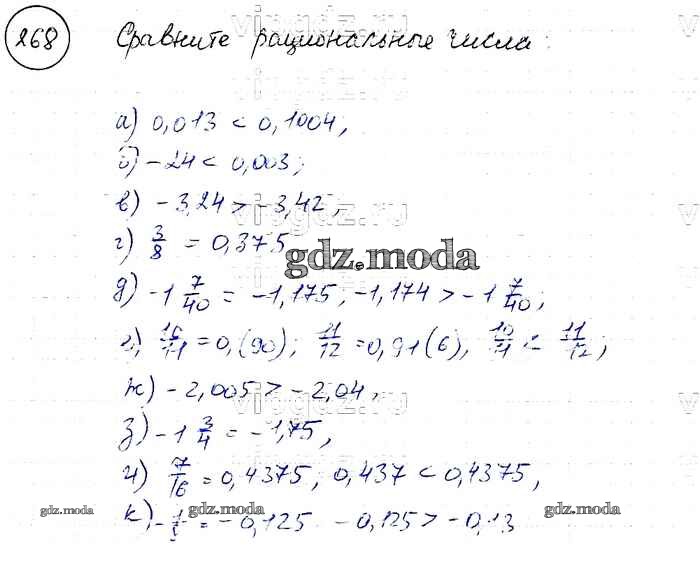 268 Сравните рациональные числа:
а) 0,013 < 0,1004;
б) -24 < 0,003;
в) -3,24 > -3,42,
г) 3/8 = 0,375
gdz.moda
д) -1 7/40 = -1,175, -1,174 > -1 7/40;
е) 10/11 = 0,(90); 11/12 = 0,91(6), 10/11 < 11/12;
ж) -2,005 > -2,04,
з) -1 3/4 = -1,75,
и) 7/16 = 0,4375; 0,437 < 0,4375,
к) -1/8 = -0,125 -0,125 > -0,13
gdz.moda gdz.moda gdz.moda